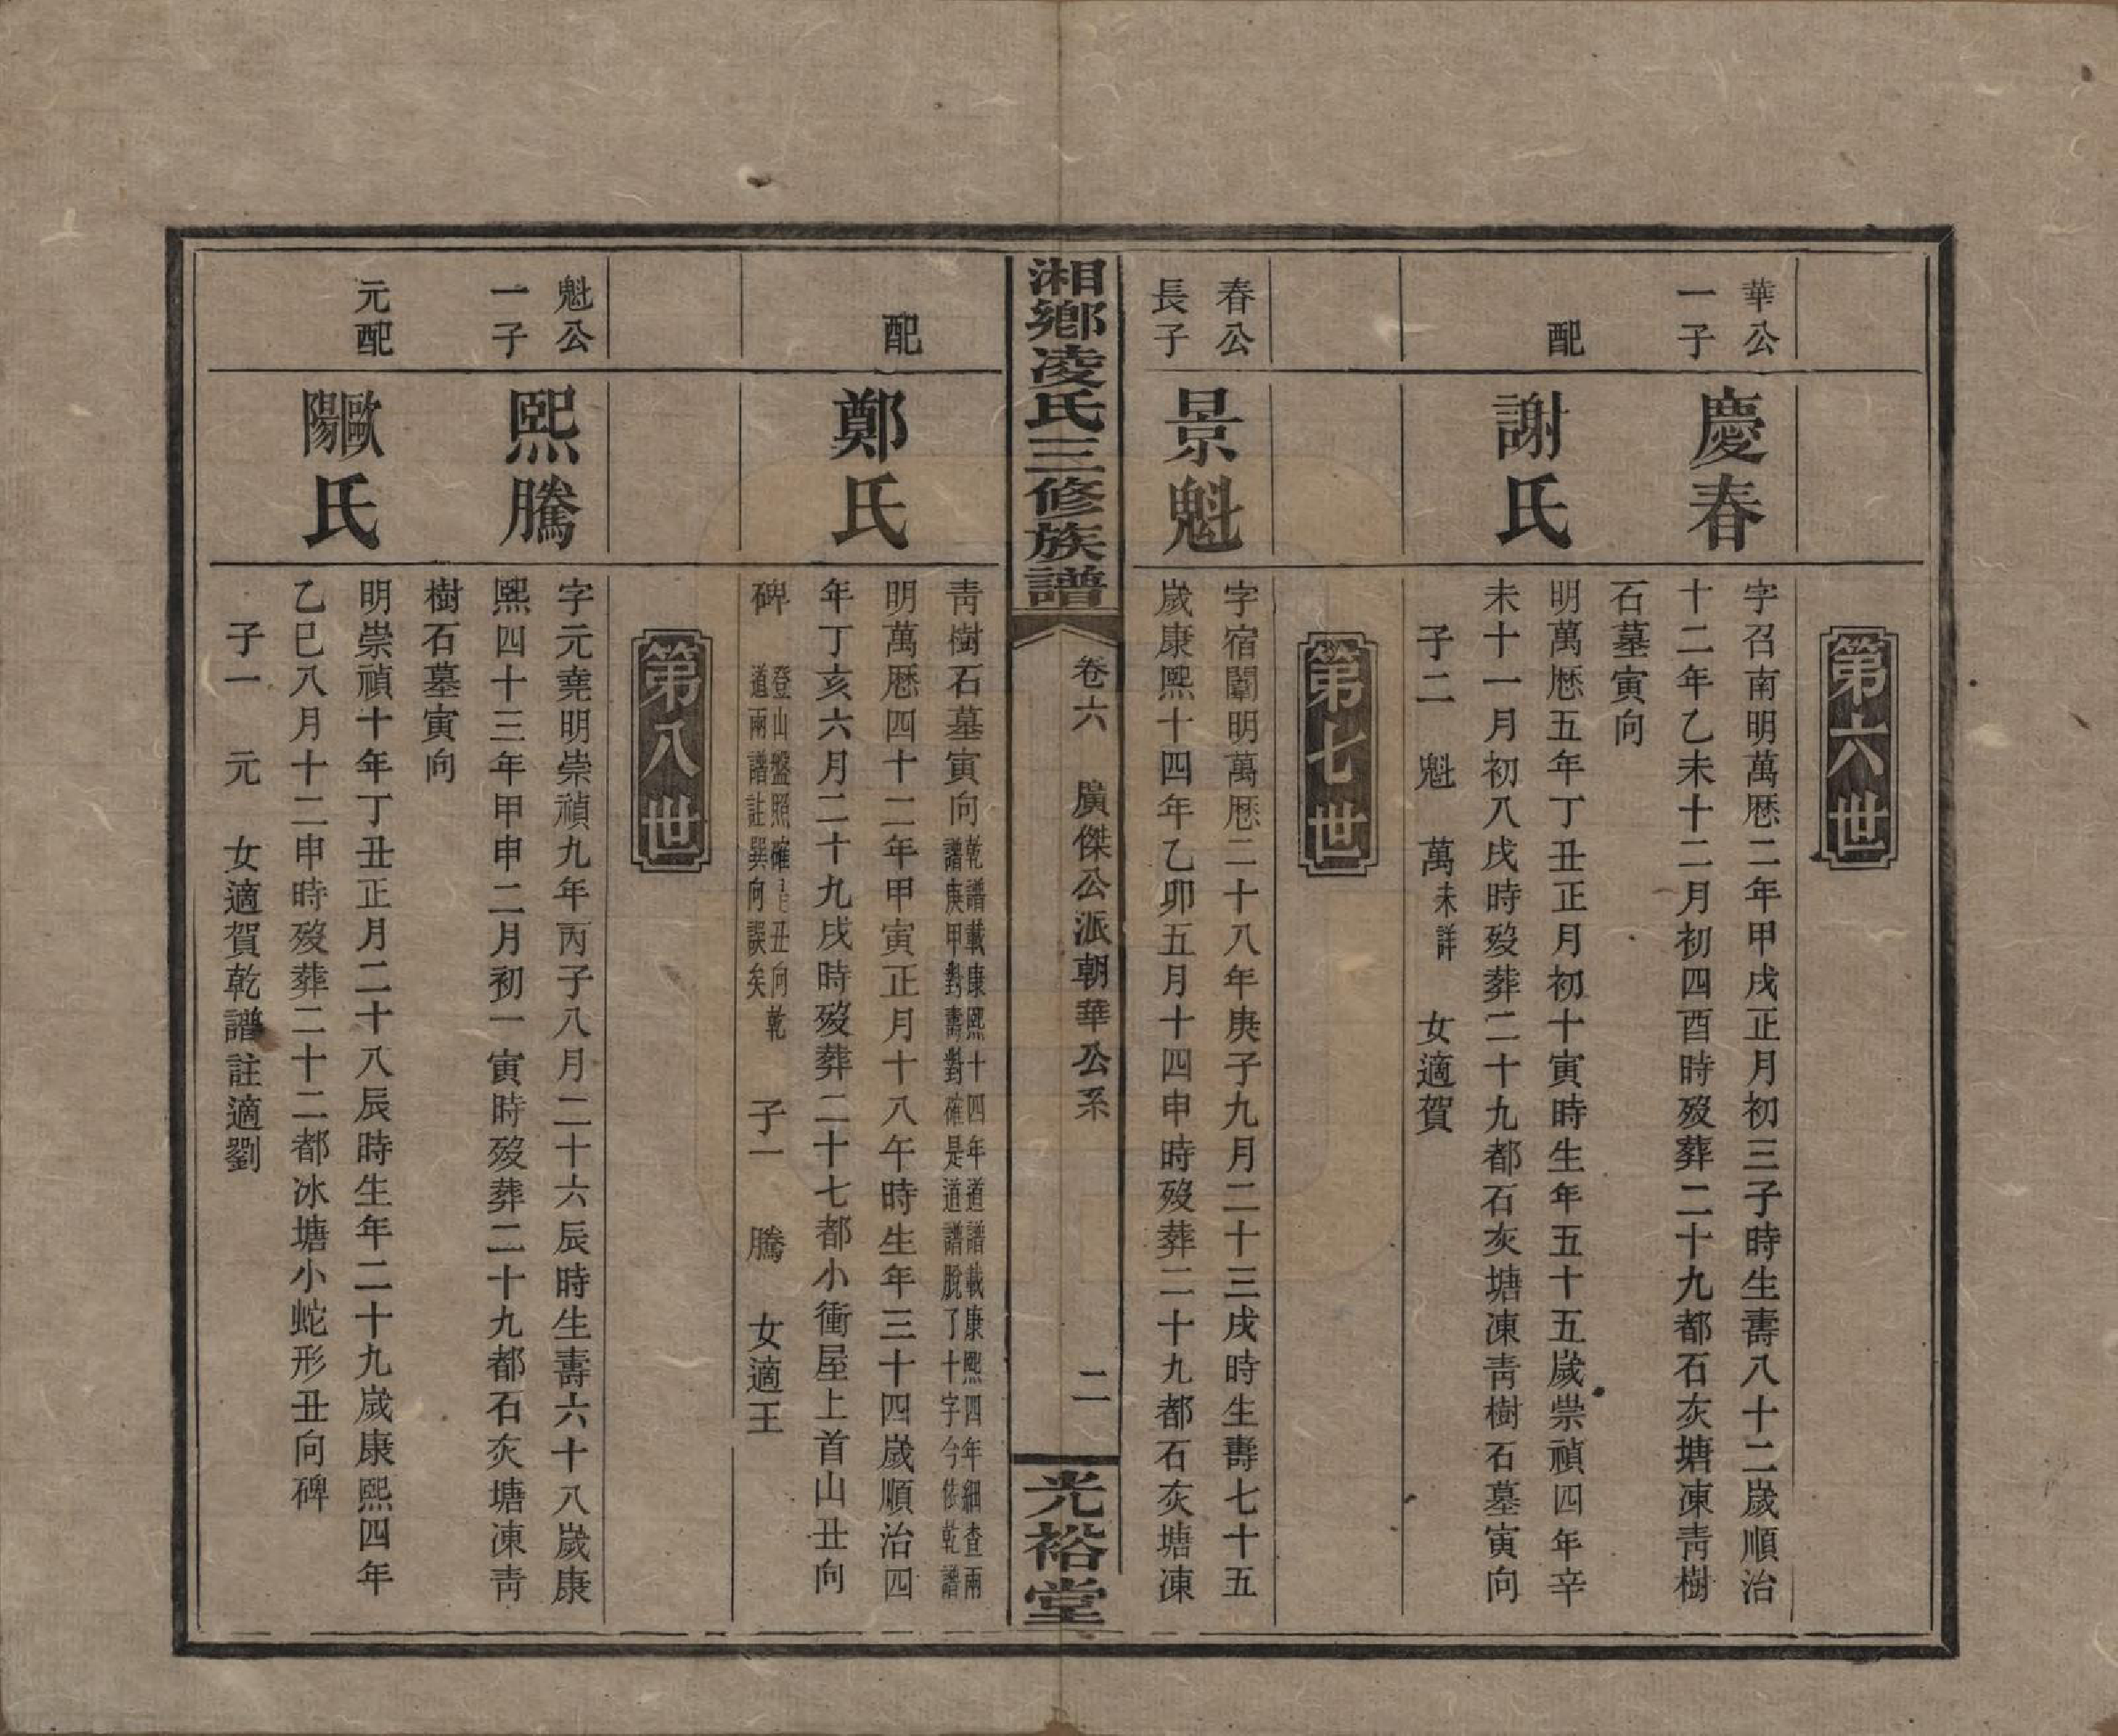 第六世
華公
一子
慶春
字召南明萬厯二年甲戌正月初三子時生壽八十二歲順治
十二年乙未十二月初四酉時歿葬二十九都石灰塘凍靑樹
石墓寅向
配
謝氏
明萬厯五年丁丑正月初十寅時生年五十五歲崇禎四年辛
未十一月初八戌時歿葬二十九都石灰塘凍靑樹石墓寅向
子二 魁 萬未詳 女適賀
第七世
春公
長子
景魁
字宿闈明萬厯二十八年庚子九月二十三戌時生壽七十五
歲康熙十四年乙卯五月十四申時歿葬二十九都石灰塘凍
湘鄉凌氏三修族譜
卷六 廣傑公派朝華公系
二
光裕堂
靑樹石墓寅向
乾譜載康熙十四年道譜載康熙四年細查兩
譜庚甲對壽對確是道譜脫了十字今依乾譜
配
鄭氏
明萬厯四十二年甲寅正月十八午時生年三十四歲順治四
年丁亥六月二十九戌時歿葬二十七都小衝屋上首山丑向
碑
登山盤照確是丑向乾
道兩譜註巽向誤矣
子一 騰 女適王
第八世
魁公
一子
熙騰
字元堯明崇禎九年丙子八月二十六辰時生壽六十八歲康
熙四十三年甲申二月初一寅時歿葬二十九都石灰塘凍靑
樹石墓寅向
元配
歐陽氏
明崇禎十年丁丑正月二十八辰時生年二十九歲康熙四年
乙巳八月十二申時歿葬二十二都冰塘小蛇形丑向碑
子一 元 女適賀乾譜註適劉